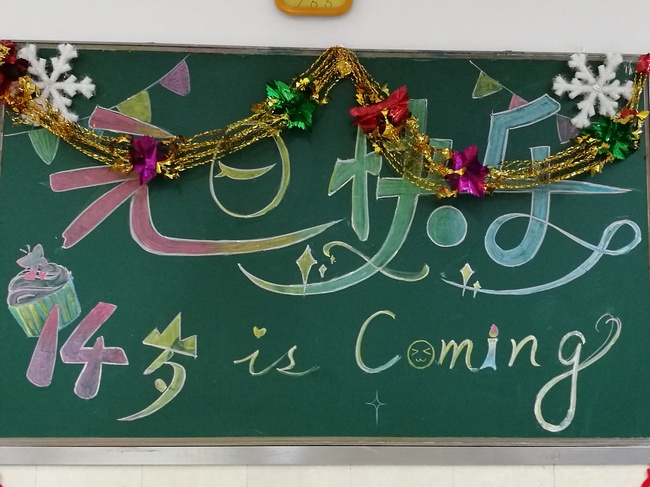 元旦快乐
14岁 is Coming